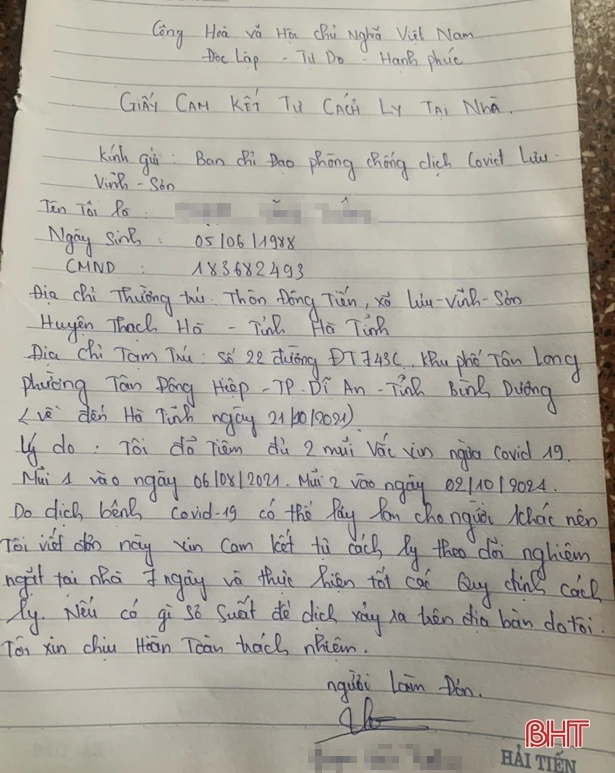 Cộng Hoà xã Hội chủ Nghĩa Việt Nam
Độc Lập - Tự Do - Hạnh phúc
GIẤY CAM KẾT TỰ CÁCH LY TẠI NHÀ.
Kính gửi : Ban chỉ Đạo phòng chống dịch Covid Lưu -
Vĩnh - Sơn
Tên Tôi là :
Ngày Sinh : 05/06/1988
CMND : 183682493
Địa chỉ Thường trú : Thôn Đồng Tiến, xã Lưu-Vĩnh-Sơn
Huyện Thạch Hà - Tỉnh Hà Tĩnh
Địa chỉ Tạm Trú : Số 22 đường ĐT743C. Khu phố Tân Long
phường Tân Đông Hiệp - TP. Dĩ An - Tỉnh Bình Dương
( về đến Hà Tĩnh ngày 21/10/2021)
Lý do : Tôi đã Tiêm đủ 2 mũi Vắc xin ngừa Covid 19.
Mũi 1 vào ngày 06/08/2021. Mũi 2 vào ngày 02/10/2021.
Do dịch bệnh Covid-19 có thể lây lan cho người khác nên
Tôi viết đơn này xin Cam kết tự cách ly theo dõi nghiêm
ngặt tại nhà 7 ngày và thực hiện tốt các Quy định cách
ly. Nếu có gì sơ suất để dịch xảy ra trên địa bàn do tôi.
Tôi xin chịu Hoàn Toàn trách nhiệm.
người Làm Đơn.
BHT
HẢI TIẾN
HẢI TIẾN